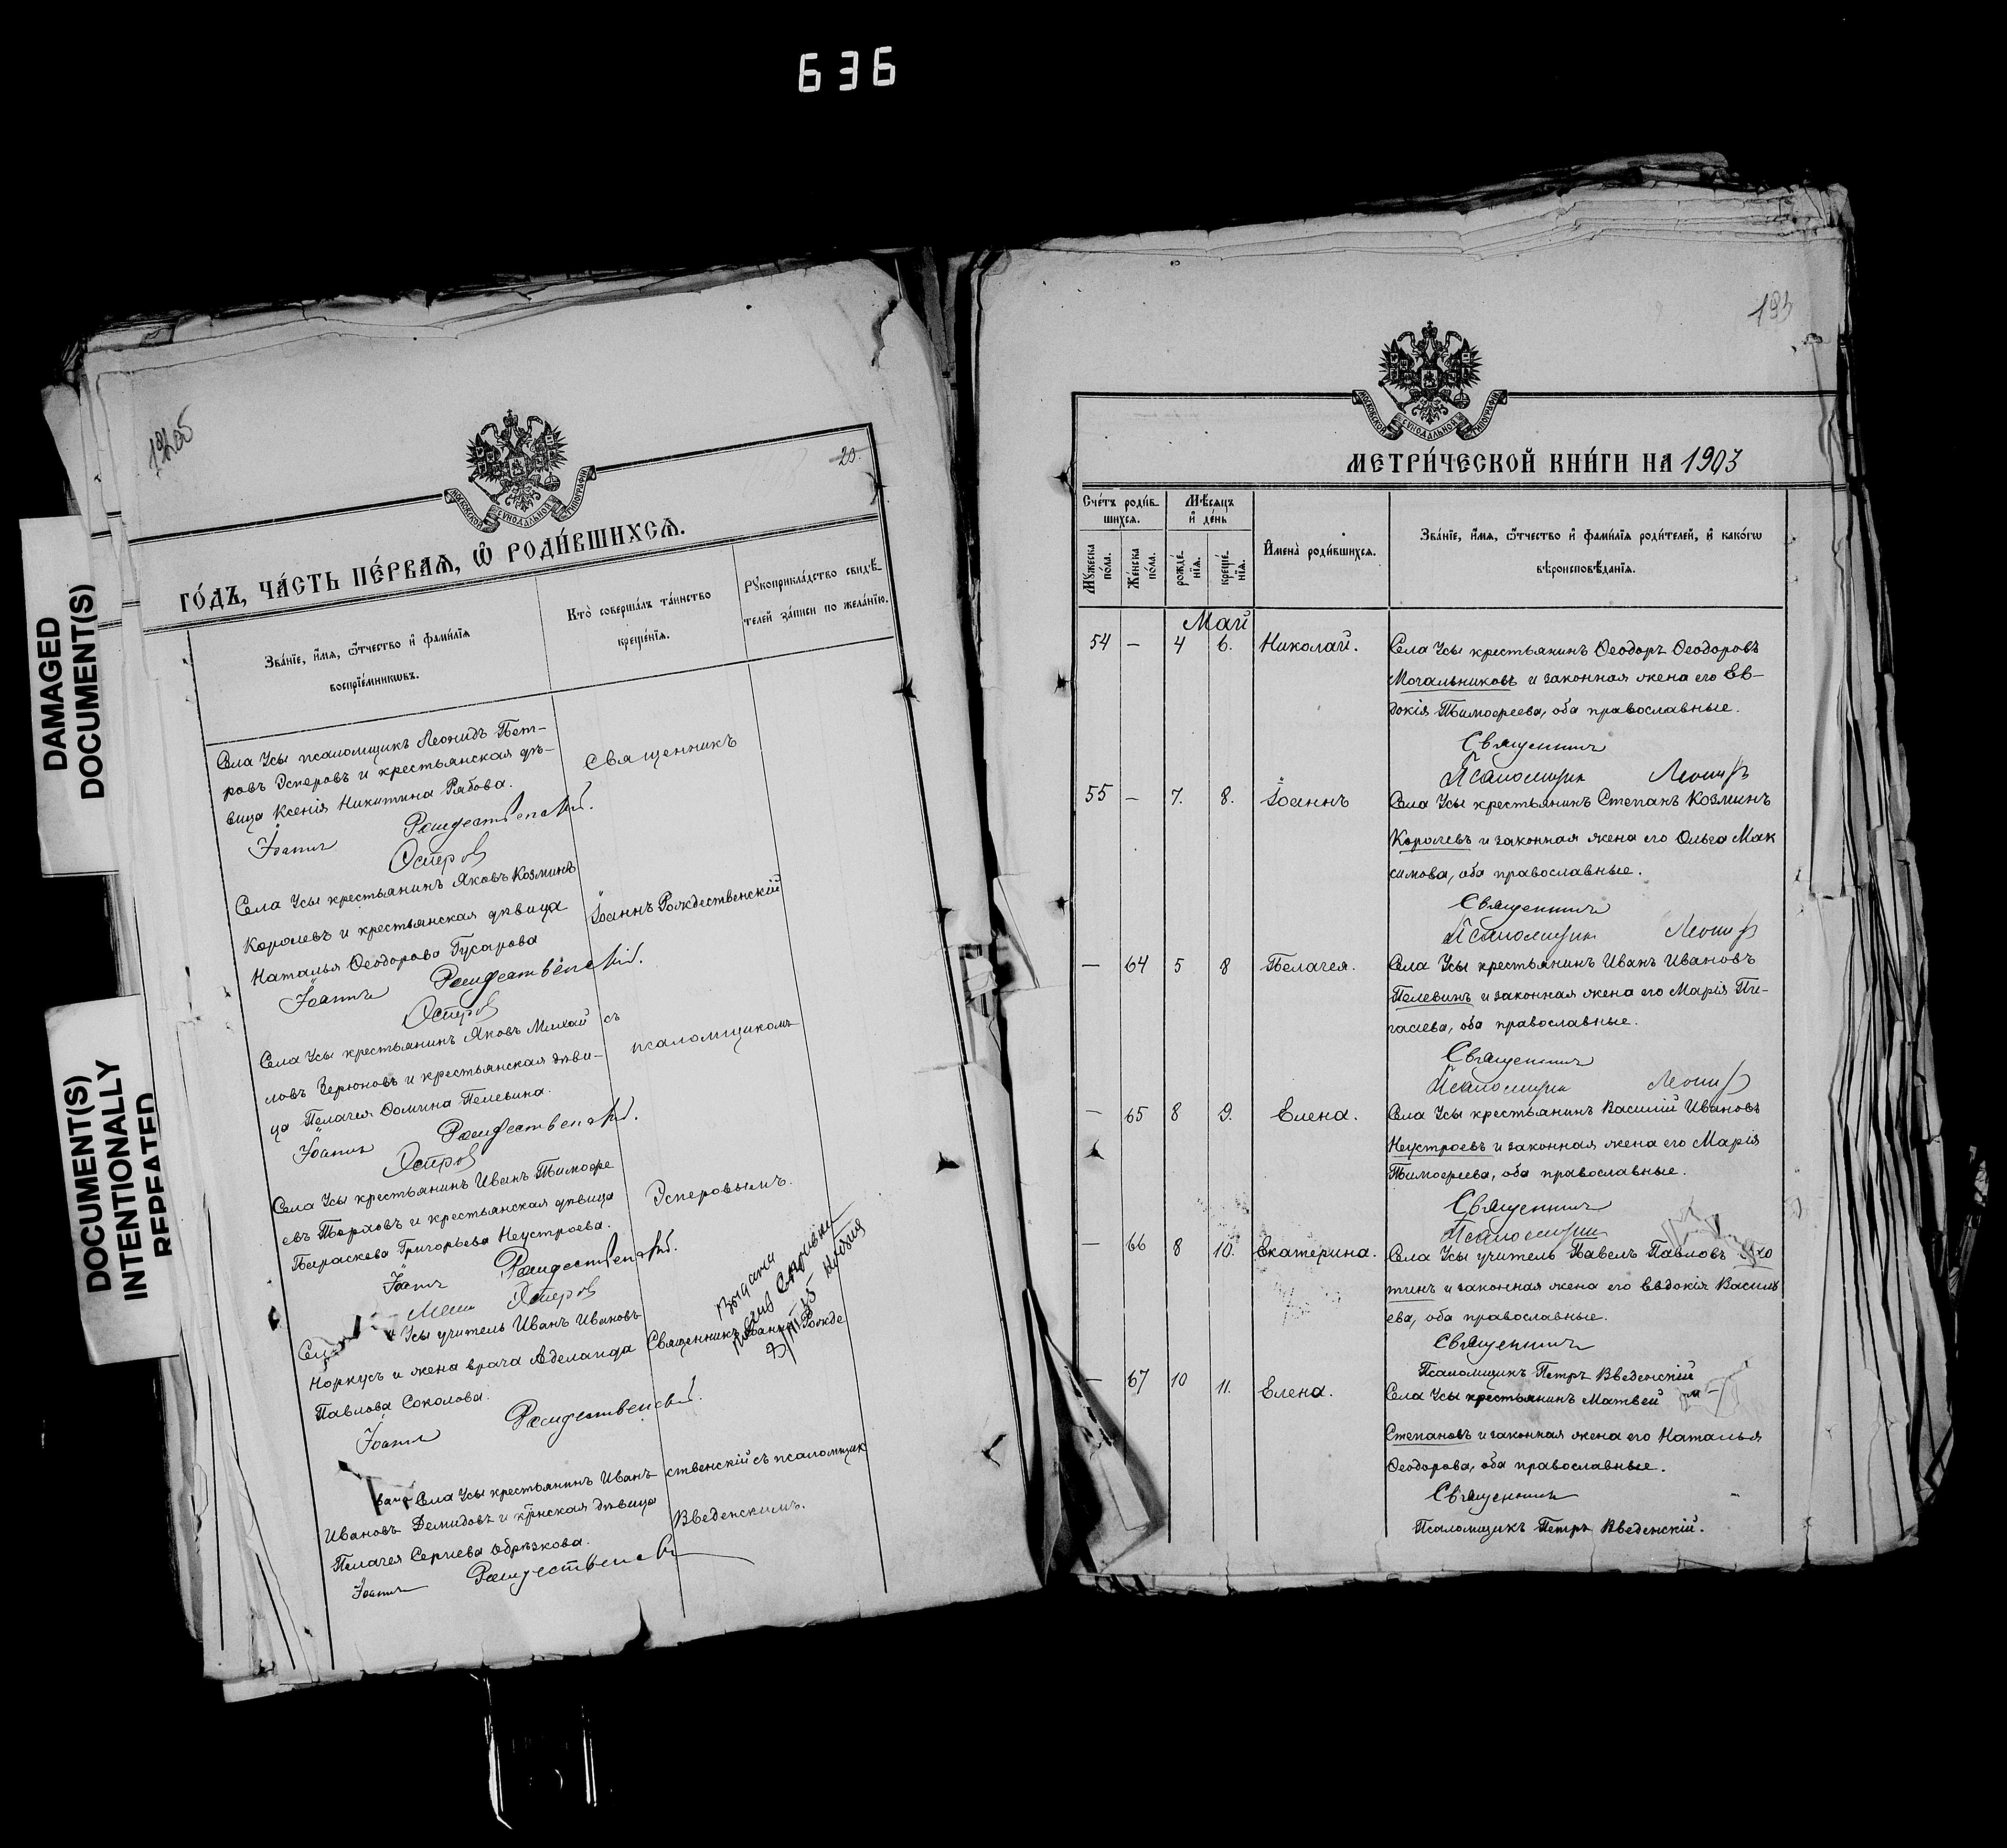 636
DAMAGED
DOCUMENT(S)
DOCUMENT(S)
INTENTIONALLY
REPEATED
20.
МОСКОВСКОЙ СѴНОДАЛЬНОЙ ТИПОГРАФІИ
ГО́ДЪ, ЧА́СТЬ ПЕ́РВАѦ, Ѡ҆ РОДИ́ВШИХСѦ.
Зва́нїе, и҆́мѧ, ѻ҆́тчество и҆ фами́лїѧ
воспрїе́мникѡвъ.
Кто̀ соверша́лъ та́инство
креще́нїѧ.
Рꙋкоприкла́дство свидѣ́-
телей за́писи по жела́нїю.
Села Усы псаломщикъ Леонидъ Пет-
ровъ Эсперовъ и крестьянская дѣ-
вица Ксенія Никитина Рябова.
Священникъ
Іоаннъ Рождественскій.
Эсперовъ
Села Усы крестьянинъ Яковъ Козминъ
Королевъ и крестьянская дѣвица
Наталья Ѳеодорова Гусарова
Іоаннъ Рождественскій
Іоаннъ Рождественскій.
Эсперовъ
Села Усы крестьянинъ Яковъ Михай
ловъ Зерюновъ и крестьянская дѣви-
ца Пелагея Ѳомина Пелевина.
съ
псаломщикомъ
Іоаннъ Рождественскій.
Эсперовъ
Села Усы крестьянинъ Иванъ Тимофе
евъ Торховъ и крестьянская дѣвица
Параскева Григорьева Неустроева.
Эсперовымъ.
Іоаннъ Рождественскій.
Эсперовъ
Усы учитель Иванъ Ивановъ
Норкусъ и жена врача Аделаида
Павлова Соколова.
Священникъ Іоаннъ Рожде
Выдана
Іоаннъ Рождественскій.
Села Усы крестьянинъ Иванъ
Ивановъ Демидовъ и кр̃нская дѣвица
Пелагея Сергиева Обрѣзкова.
ственскій съ псаломщик
Введенскимъ.
Іоаннъ Рождественскій
193
МОСКОВСКОЙ СѴНОДАЛЬНОЙ ТИПОГРАФІИ
МЕТРИ́ЧЕСКОЙ КНИ́ГИ НА 1903
Сче́тъ роди́в-
шихсѧ.
Мѣ́сѧцъ
и҆ де́нь
И҆мена̀ роди́вшихсѧ.
Зва́нїе, и҆́мѧ, ѻ҆́тчество и҆ фами́лїѧ роди́телей, и҆ како́гѡ
вѣроисповѣ́данїѧ.
Мꙋ́жеска
по́ла.
Же́нска
по́ла.
рожде́-
нїѧ.
креще́-
нїѧ.
Май
54 — 4 6. Николай. Села Усы крестьянинъ Ѳеодоръ Ѳеодоровъ
Мочальниковъ и законная жена его Ев-
докія Тимоѳеева, оба православные.
Священникъ
Псаломщикъ Леонидъ
55 — 7. 8. Іоаннъ Села Усы крестьянинъ Степанъ Козминъ
Королевъ и законная жена его Ольга Мак
симова, оба православные.
Священникъ
Псаломщикъ Леонидъ
— 64 5 8 Пелагея. Села Усы крестьянинъ Иванъ Ивановъ
Пелевинъ и законная жена его Марія Пи-
гасіева, оба православные.
Священникъ
Псаломщикъ Леонидъ
— 65 8 9. Елена. Села Усы крестьянинъ Василій Ивановъ
Неустроевъ и законная жена его Марія
Тимоѳеева, оба православные.
Священникъ
Псаломщикъ
— 66 8 10. Екатерина. Села Усы учитель Павелъ Павловъ
тинъ и законная жена его Евдокія Василь
ева, оба православные.
Священникъ
Псаломщикъ Петръ Введенскій
— 67 10 11. Елена. Села Усы крестьянинъ Матвей
Степановъ и законная жена его Наталья
Ѳеодорова, оба православные.
Священникъ
Псаломщикъ Петръ Введенскій.